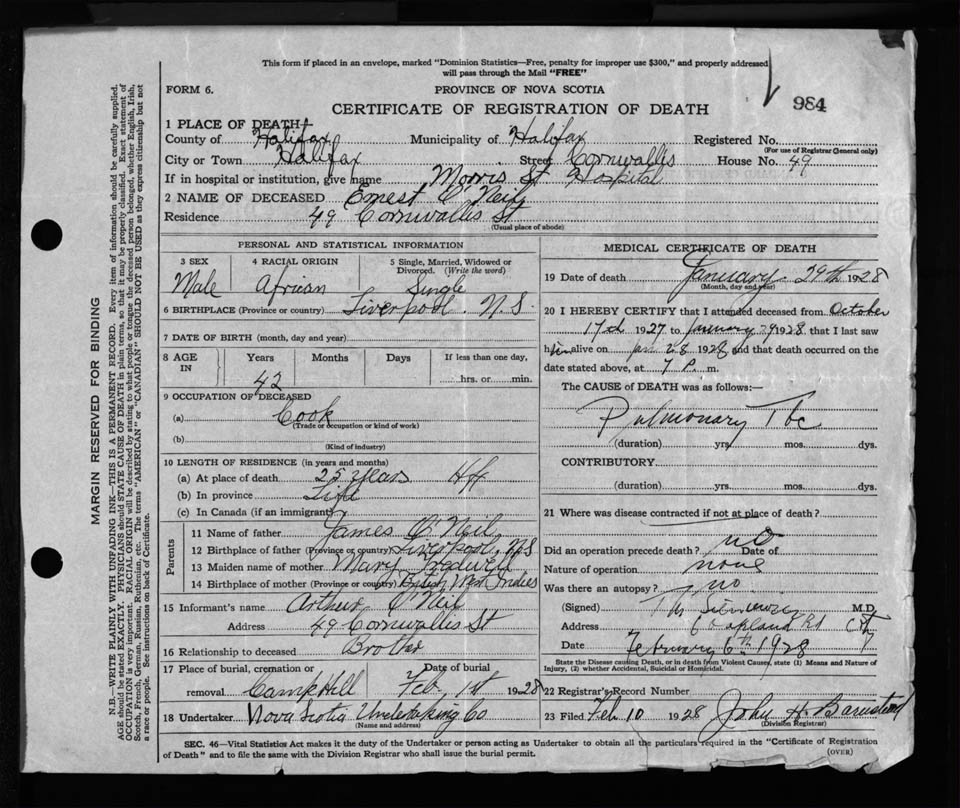 This form if placed in an envelope, marked "Dominion Statistics—Free, penalty for improper use $300," and properly addressed
will pass through the Mail "FREE"
FORM 6.
PROVINCE OF NOVA SCOTIA
CERTIFICATE OF REGISTRATION OF DEATH
984
1 PLACE OF DEATH
County of Halifax Municipality of Halifax Registered No.
(For use of Registrar General only)
City or Town Halifax Street Cornwallis House No. 49
If in hospital or institution, give name Morris St Hospital
2 NAME OF DECEASED Ernest O'Neil
Residence 49 Cornwallis St
(Usual place of abode)
PERSONAL AND STATISTICAL INFORMATION
3 SEX 4 RACIAL ORIGIN 5 Single, Married, Widowed or
Divorced. (Write the word)
Male African Single
6 BIRTHPLACE (Province or country) Liverpool. N.S.
7 DATE OF BIRTH (month, day and year)
8 AGE IN Years Months Days If less than one day,
42 hrs. or min.
9 OCCUPATION OF DECEASED
(a) Cook
(Trade or occupation or kind of work)
(b)
(Kind of industry)
10 LENGTH OF RESIDENCE (in years and months)
(a) At place of death 25 years Hfx
(b) In province Life
(c) In Canada (if an immigrant)
Parents
11 Name of father James O'Neil
12 Birthplace of father (Province or country) Liverpool, N.S
13 Maiden name of mother Mary
14 Birthplace of mother (Province or country) British West Indies
15 Informant's name Arthur O'Neil
Address 49 Cornwallis St
16 Relationship to deceased Brother
17 Place of burial, cremation or Date of burial
removal Camp Hill Feb. 1st 1928
18 Undertaker Nova Scotia Undertaking Co
(Name and address)
MEDICAL CERTIFICATE OF DEATH
19 Date of death January 29th 1928
(Month, day and year)
20 I HEREBY CERTIFY that I attended deceased from October
17th 1927 to January 29 1928 that I last saw
him alive on Jan 28 1928 and that death occurred on the
date stated above, at 7 P. m.
The CAUSE of DEATH was as follows:
Pulmonary Tbc
(duration) yrs. mos. dys.
CONTRIBUTORY
(duration) yrs. mos. dys.
21 Where was disease contracted if not at place of death?
Did an operation precede death? no Date of
Nature of operation none
Was there an autopsy? no
(Signed) M.D.
Address
Date February 6th 1928
State the Disease causing Death, or in death from Violent Causes, state (1) Means and Nature of
Injury, (2) whether Accidental, Suicidal or Homicidal.
22 Registrar's Record Number
23 Filed Feb 10 1928 John H Barnstead
(Division Registrar)
SEC. 46—Vital Statistics Act makes it the duty of the Undertaker or person acting as Undertaker to obtain all the particulars required in the "Certificate of Registration
of Death" and to file the same with the Division Registrar who shall issue the burial permit.
(OVER)
MARGIN RESERVED FOR BINDING
N.B.—WRITE PLAINLY WITH UNFADING INK—THIS IS A PERMANENT RECORD. Every item of information should be carefully supplied.
AGE should be stated EXACTLY. PHYSICIANS should STATE CAUSE OF DEATH in plain terms, so that it may be properly classified. Exact statement of
OCCUPATION is very important. RACIAL ORIGIN will be described by stating to what people or tongue the deceased person belonged, whether English, Irish,
Scotch, French, German, Russian, Ruthenian, etc. The terms "AMERICAN" or "CANADIAN" SHOULD NOT BE USED as they express citizenship but not
a race or people. See instructions on back of Certificate.